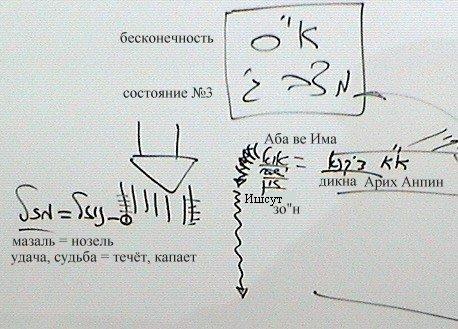 бесконечность
א"ס
מצב ג'
состояние №3
Аба ве Има
א"א דיקנא =
дикна Арих Анпин
Ишсут
зо"н
מזל = נוזל
мазаль = нозель
удача, судьба = течёт, капает